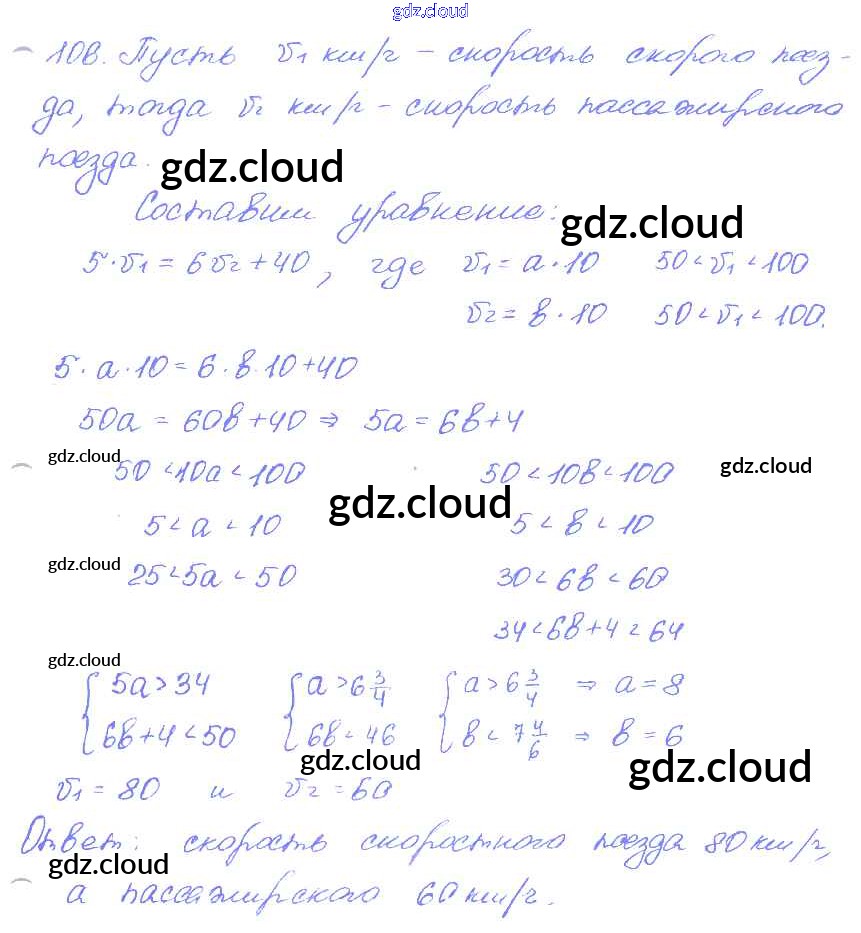 gdz.cloud
108. Пусть v₁ км/ч – скорость скорого поез-
да, тогда v₂ км/ч – скорость пассажирского
поезда.
gdz.cloud
Составим уравнение:
gdz.cloud
5·v₁ = 6v₂ + 40, где v₁ = a·10 50 < v₁ < 100
v₂ = b·10 50 < v₁ < 100.
5·a·10 = 6·b·10 + 40
50a = 60b + 40 ⇒ 5a = 6b + 4
gdz.cloud
50 < 10a < 100 50 < 10b < 100
gdz.cloud
gdz.cloud
5 < a < 10 5 < b < 10
gdz.cloud
25 < 5a < 50 30 < 6b < 60
34 < 6b + 4 < 64
gdz.cloud
{ 5a > 34 { a > 6 3/4 { a > 6 3/4 ⇒ a = 8
{ 6b + 4 < 50 { 6b < 46 { b < 7 4/6 ⇒ b = 6
gdz.cloud
gdz.cloud
v₁ = 80 и v₂ = 60
Ответ: скорость скоростного поезда 80 км/ч,
gdz.cloud
а пассажирского 60 км/ч.